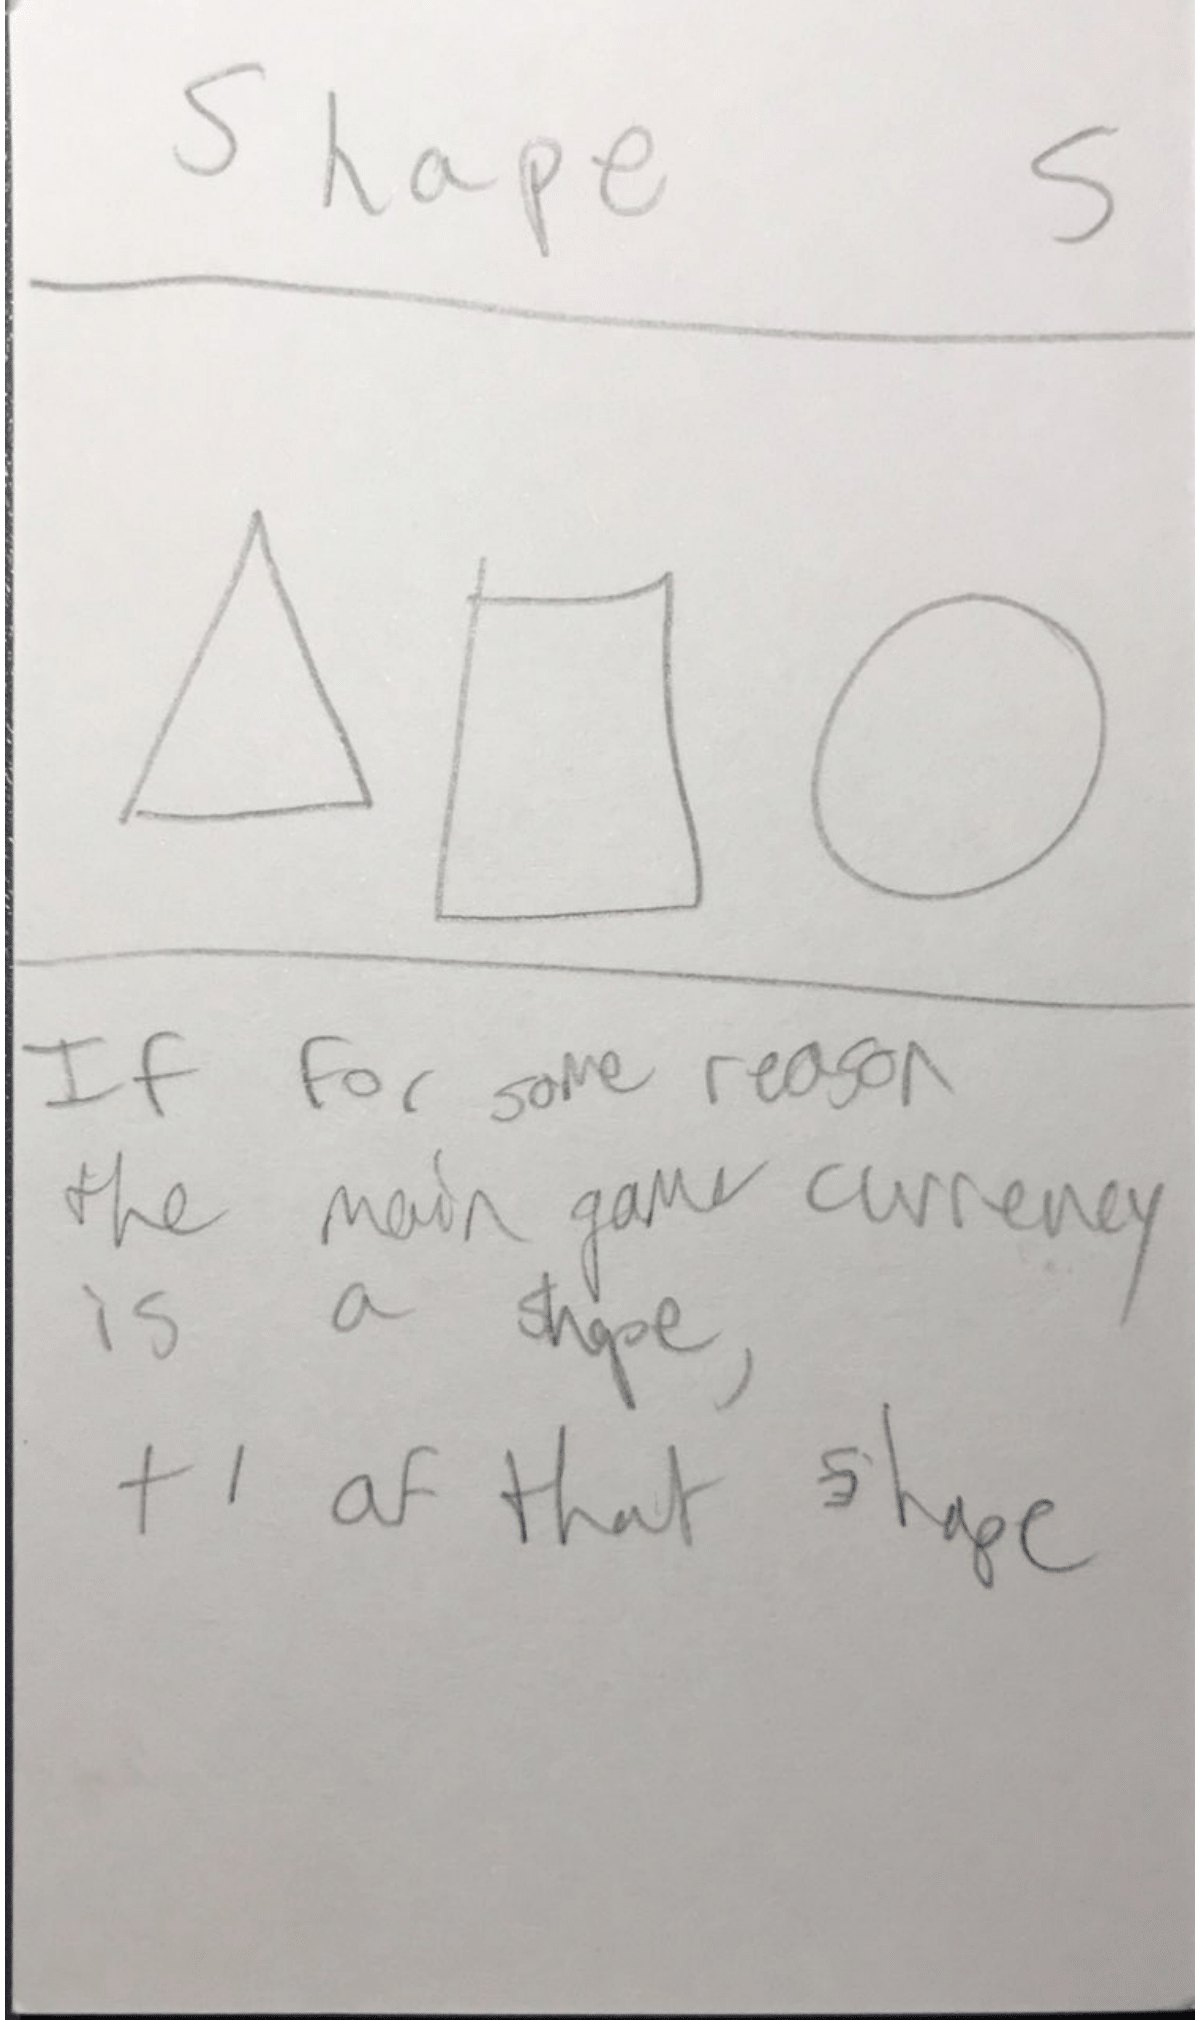 Shape S
If for some reason
the main game currency
is a shape,
+1 of that shape